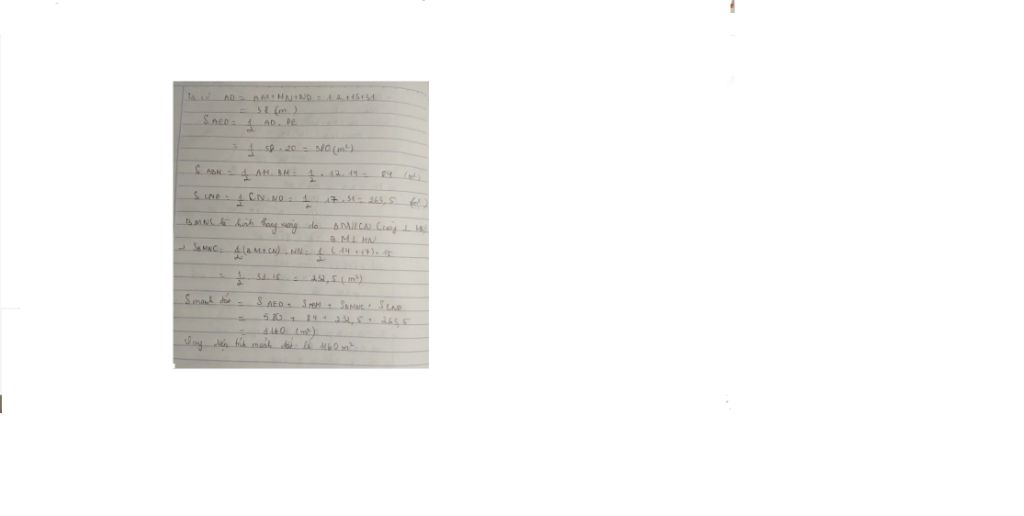 AD = AM+MN+ND = 12+15+31
= 58 (m)
S AED = 1/2 AD. PE
= 1/2 . 58 . 20 = 580 (m²)
S ABM = 1/2 AM. BM = 1/2 . 12. 14 = 84 (m²)
S CND = 1/2 CN. ND = 1/2 17. 31 = 263,5 (m²)
BMNC là hình thang vuông do BM//CN (cùng ⊥ MN)
BM⊥ MN
→ SBMNC = 1/2 (BM+CN) . MN = 1/2 (14 +17). 15
= 1/2 . 31. 15 = 232,5 (m²)
S mảnh đất = S AED + S ABM + SBMNC + S CND
= 580 + 84 + 232,5 + 263,5
= 1160 (m²)
Vậy diện tích mảnh đất là 1160 m²